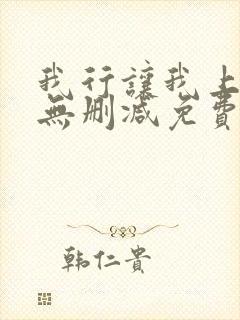 我行讓我上
無刪減免費
韩仁貴